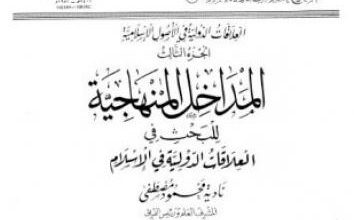 العلاقات الدولية في الأصول الإسلامية
الجزء الثالث
المداخل المنهاجية
للبحث في
العلاقات الدولية في الإسلام
نادية محمود مصطفى
المشرف العام ورئيس الفريق